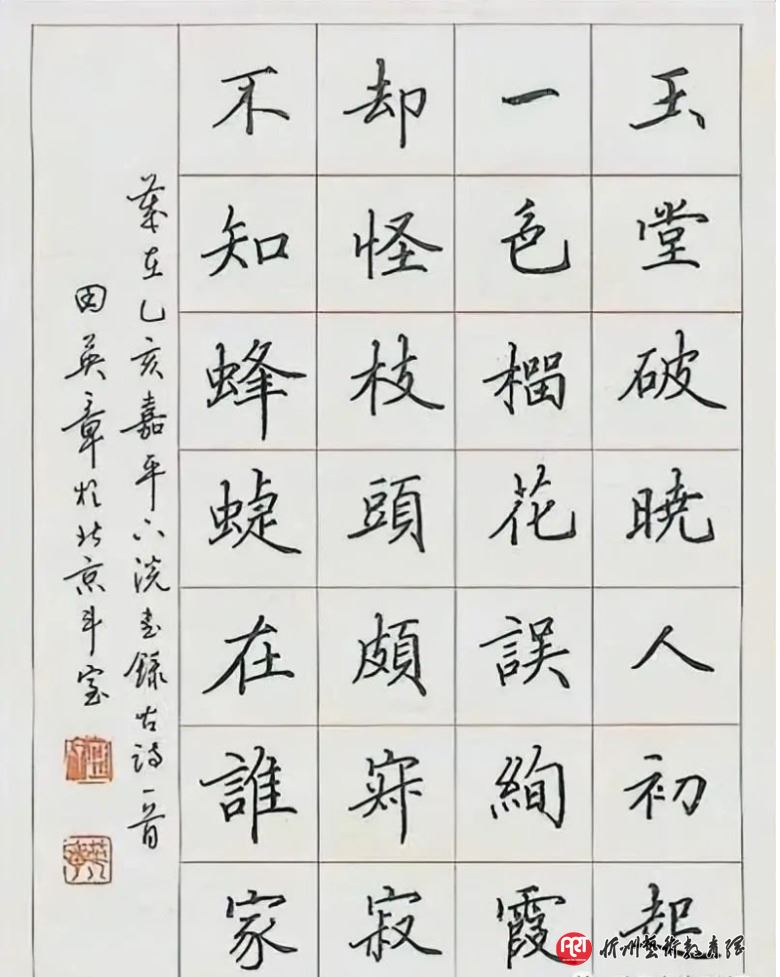 玉堂破曉人初起
一色榴花誤絢霞
却怪枝頭頗寂
不知蜂蜨在誰家
歲在乙亥嘉平下浣書錄古詩一首
田英章於北京斗室
ART
忻州藝術教育網